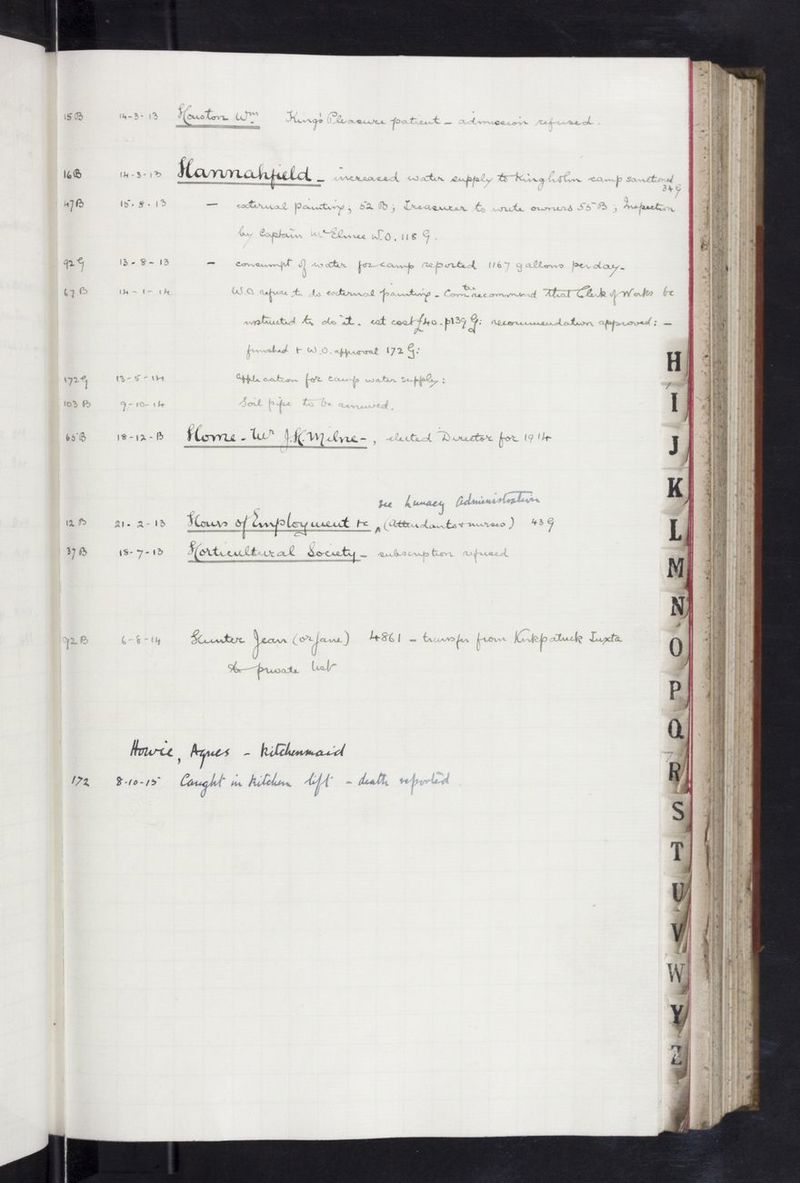 15 B 14-3-13 Houston Wm King's Pleasure patient - admission refused.
16 B 14-3-13 Hannahfield - increased water supply to Kingholm camp sanctioned
34 G
47 B 15-8-13 - external painting, 52 B; Treasurer to write owners 55 B; Inspection
by Captain W.O. 118 G.
92 G 13-8-13 - consumpt of water for camp reported 1167 gallons per day.
67 B 14-1-14 W.O. refuse to do external painting - Comtee recommend that Clerk of Works be
instructed to do it. est cost £40. p139 G: recommendation approved: -
finished & W.O. approval 172 G:
172 G 13-5-14 Application for camp water supply:
103 B 9-10-14 Soil pipe to be renewed.
H
I
65 B 18-12-13 Home - Mr J. H. Milne -, elected Director for 1914
J
K
see Lunacy Administration
12 B 21-2-13 Hours of Employment &c (Attendants & nurses) 43 G
L
37 B 18-7-13 Horticultural Society - subscription refused
M
N
92 B 6-8-14 Hunter Jean (or Jane) 4861 - transfer from Kirkpatrick Juxta
to private list
O
P
Q
Howie, Agnes - Kitchenmaid
172 8-10-15 Caught in Kitchen lift - death reported.
R
S
T
U
V
W
Y
Z